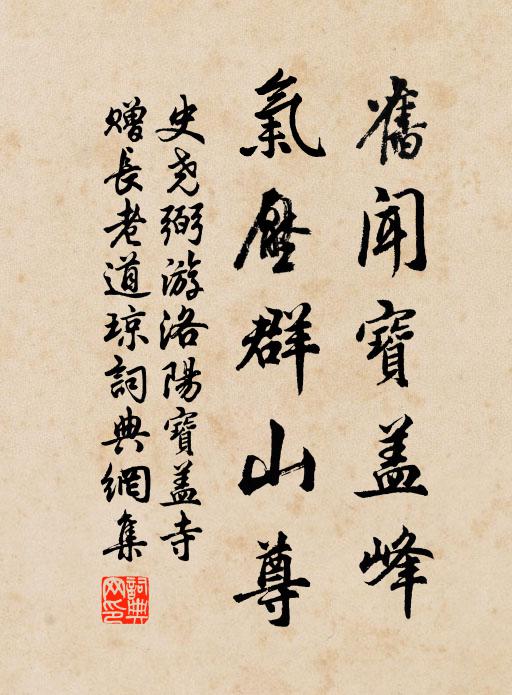 舊聞寶盖峰
氣壓群山尊
史尧弼游洛陽寶盖寺
贈長老道琼詞典網集
詞典網印